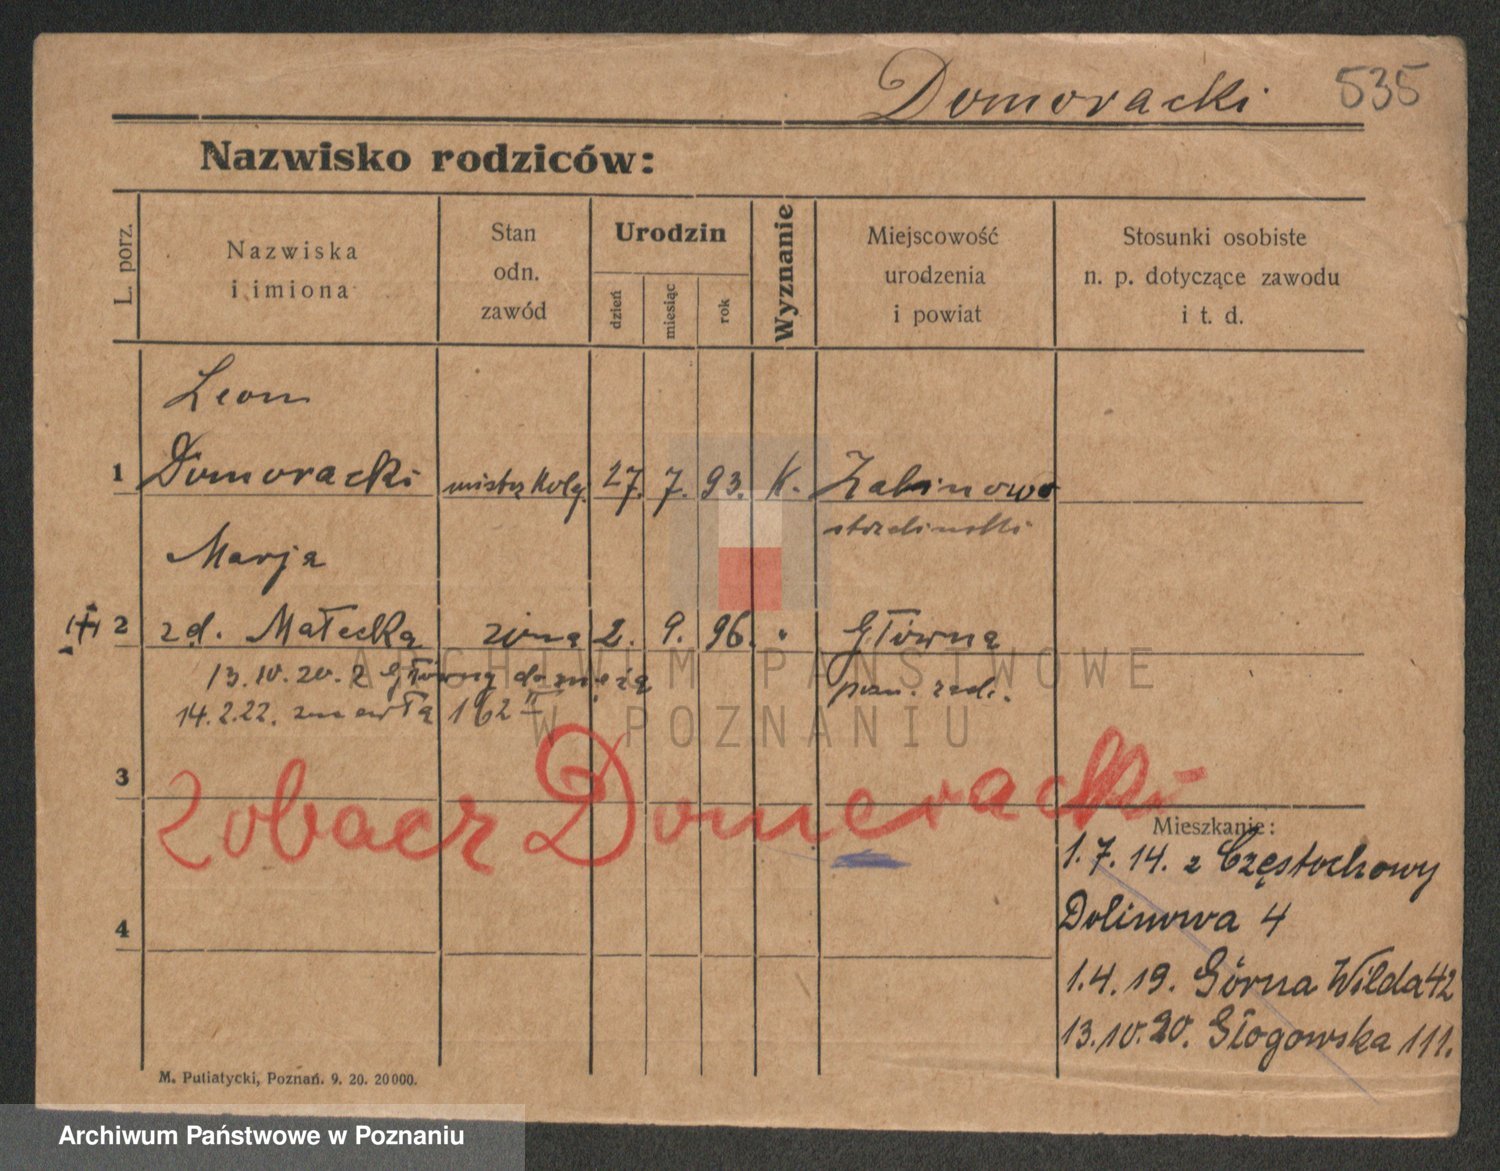 Domoracki 535
Nazwisko rodziców:
L. porz.
Nazwiska
i imiona
Stan
odn.
zawód
Urodzin
dzień
miesiąc
rok
Wyznanie
Miejscowość
urodzenia
i powiat
Stosunki osobiste
n. p. dotyczące zawodu
i t. d.
Leon
1 Domoracki mistrz 27. 7. 93. K.
strzeliński
Marja
2 zd. Małecka żona 2. 9. 96. " Główna
13.10.20. z Główny do męża
pozn.
14.2.22. zmarła 162 II
ARCHIWUM PAŃSTWOWE
W POZNANIU
3
Zobacz Domeracki
Mieszkanie:
1.7.14. z Częstochowy
4
Dolinowa 4
1.4.19. Górna Wilda 42
13.10.20. Głogowska 111.
M. Putiatycki, Poznań. 9. 20. 20000.
Archiwum Państwowe w Poznaniu